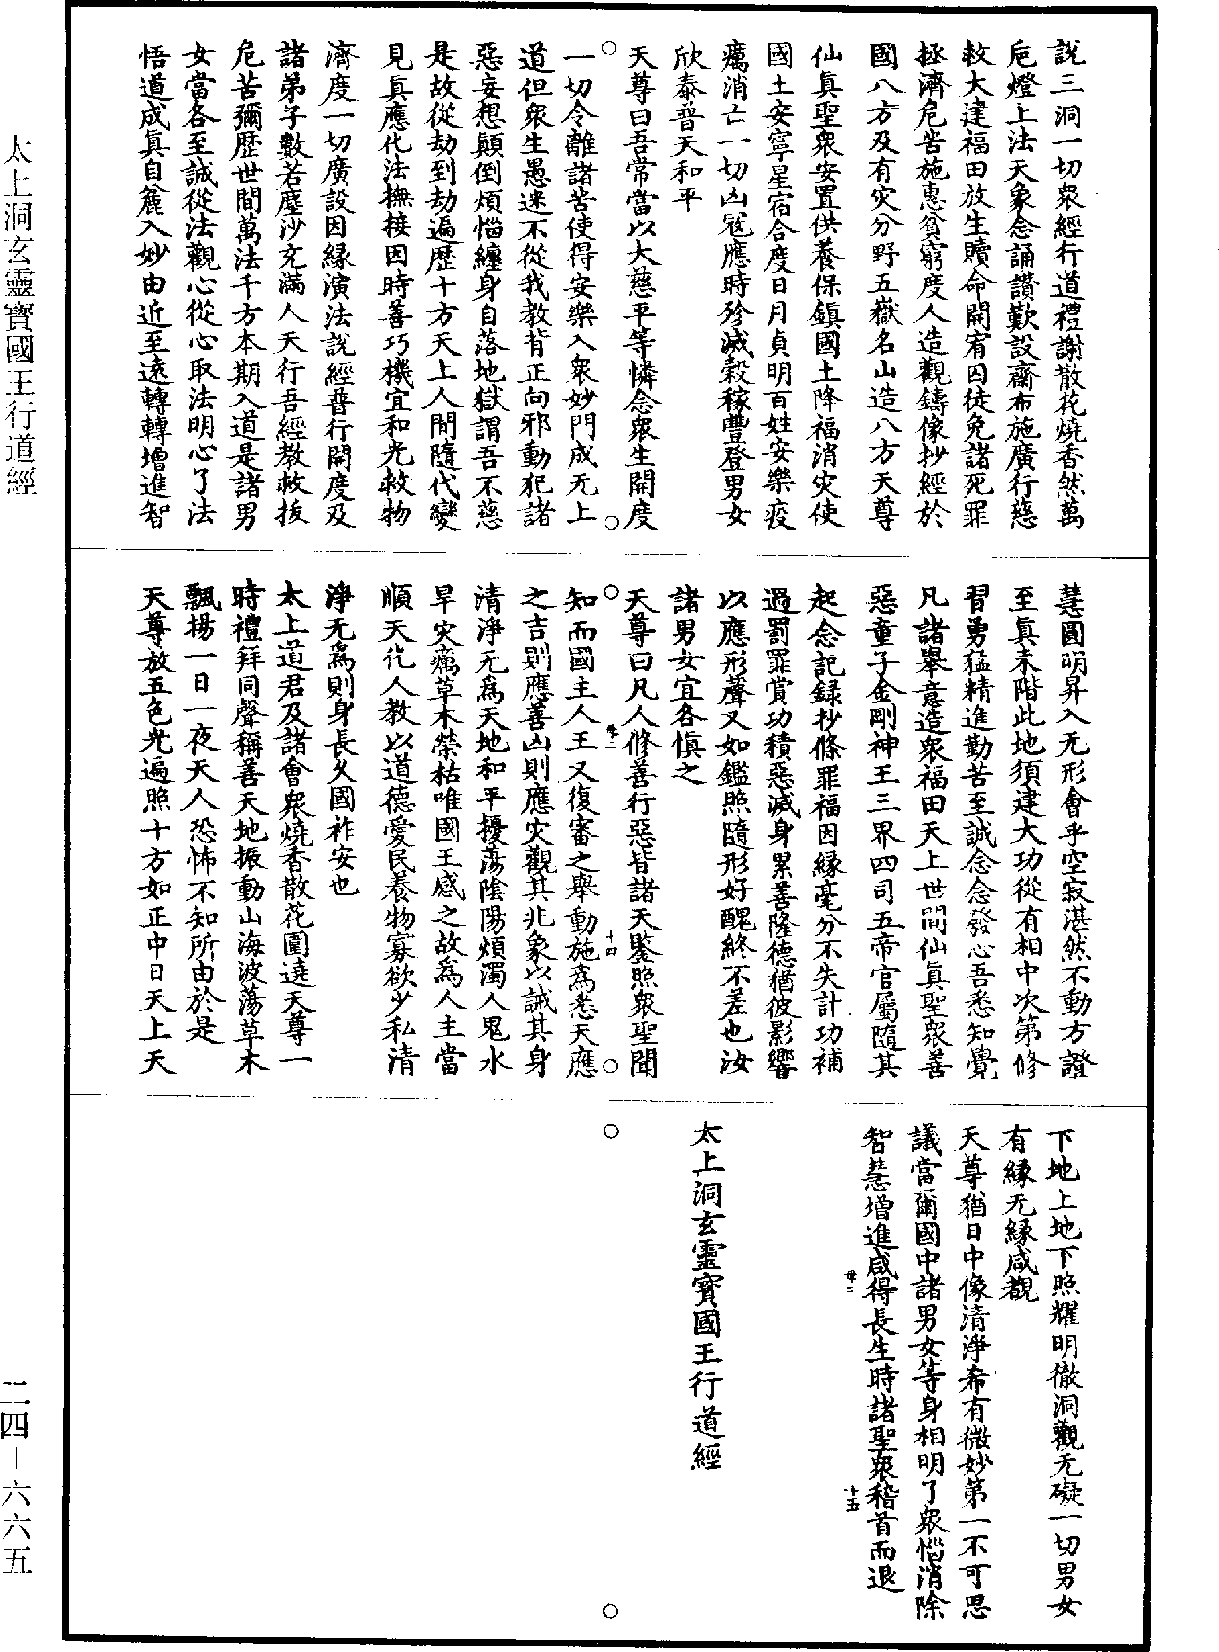 說三洞一切衆經行道禮謝散花燒香然萬
巵燈上法天象念誦讚歎設齋布施廣行慈
救大建福田放生贖命開宥囚徒免諸死罪
拯濟危苦施惠貧窮度人造觀鑄像抄經於
國八方及有灾分野五嶽名山造八方天尊
仙真聖衆安置供養保鎮國土降福消灾使
國土安寧星宿合度日月貞明百姓安樂疫
癘消亡一切凶寇應時殄滅穀稼豐登男女
欣泰普天和平
天尊曰吾常當以大慈平等憐念衆生開度
一切令離諸苦使得安樂入衆妙門成无上
道但衆生愚迷不從我教背正向邪動犯諸
惡妄想顛倒煩惱纏身自落地獄謂吾不慈
是故從劫到劫遍歷十方天上人間隨代變
見真應化法撫接因時善巧機宜和光救物
濟度一切廣設因緣演法說經普行開度及
諸弟子數若塵沙充滿人天行吾經教救拔
危苦彌歷世間萬法千方本期入道是諸男
女當各至誠從法觀心從心取法明心了法
悟道成真自麄入妙由近至遠轉轉增進智
慧圓明昇入无形會乎空寂湛然不動方證
至真未階此地須建大功從有相中次第修
習勇猛精進勤苦至誠念念發心吾悉知覺
凡諸舉意造衆福田天上世間仙真聖衆善
惡童子金剛神王三界四司五帝官屬隨其
起念記録抄條罪福因緣毫分不失計功補
過罰罪賞功積惡滅身累善隆德猶彼影響
以應形聲又如鑑照隨形好醜終不差也汝
諸男女宜各慎之
天尊曰凡人修善行惡皆諸天鑒照衆聖聞
知而國主人王又復審之舉動施爲悉天應
之吉則應善凶則應灾觀其兆象以誡其身
清淨无爲天地和平擾蕩陰陽煩濁人鬼水
旱灾癘草木榮枯唯國王感之故爲人主當
順天化人教以道德愛民養物寡欲少私清
淨无爲則身長久國祚安也
太上道君及諸會衆燒香散花圍遶天尊一
時禮拜同聲稱善天地振動山海波蕩草木
飄揚一日一夜天人恐怖不知所由於是
天尊放五色光遍照十方如正中日天上天
下地上地下照耀明徹洞觀无礙一切男女
有緣无緣咸覩
天尊猶日中像清淨希有微妙第一不可思
議當爾國中諸男女等身相明了衆惱消除
智慧增進咸得長生時諸聖衆稽首而退
太上洞玄靈寶國王行道經
十四
十五
太上洞玄靈寶國王行道經
二四—六六五